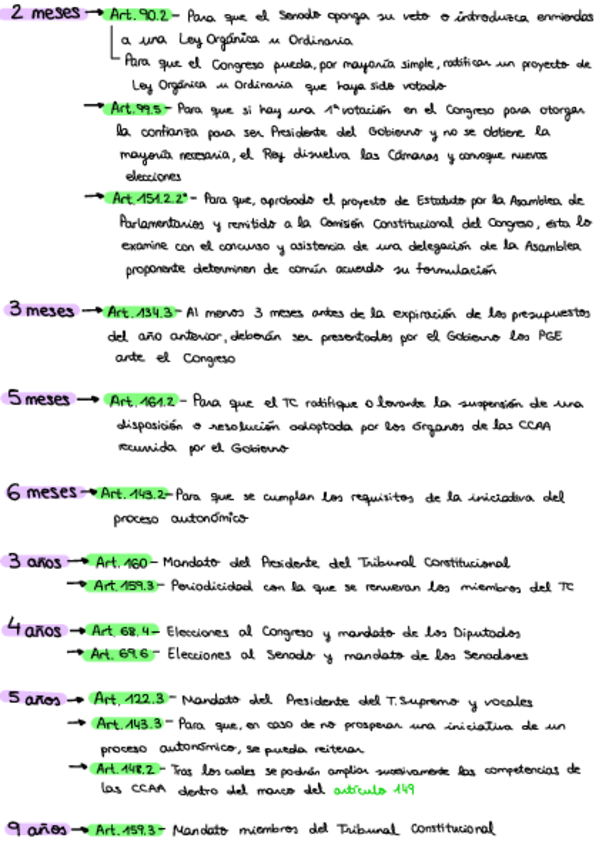 2 meses → Art. 90.2 - Para que el Senado oponga su veto o introduzca enmiendas
a una Ley Orgánica u Ordinaria
Para que el Congreso pueda, por mayoría simple, ratificar un proyecto de
Ley Orgánica u Ordinaria que haya sido votado
→ Art. 99.5 - Para que si hay una 1ª votación en el Congreso para otorgar
la confianza para ser Presidente del Gobierno y no se obtiene la
mayoría necesaria, el Rey disuelva las Cámaras y convoque nuevas
elecciones
→ Art. 151.2.2º - Para que, aprobado el proyecto de Estatuto por la Asamblea de
Parlamentarios y remitido a la Comisión Constitucional del Congreso, esta lo
examine con el concurso y asistencia de una delegación de la Asamblea
proponente determinen de común acuerdo su formulación
3 meses → Art. 134.3 - Al menos 3 meses antes de la expiración de los presupuestos
del año anterior, deberán ser presentados por el Gobierno los PGE
ante el Congreso
5 meses → Art. 161.2 - Para que el TC ratifique o levante la suspensión de una
disposición o resolución adoptada por los órganos de las CCAA
recurrida por el Gobierno
6 meses → Art. 143.2 - Para que se cumplan los requisitos de la iniciativa del
proceso autonómico
3 años → Art. 160 - Mandato del Presidente del Tribunal Constitucional
→ Art. 159.3 - Periodicidad con la que se renuevan los miembros del TC
4 años → Art. 68.4 - Elecciones al Congreso y mandato de los Diputados
→ Art. 69.6 - Elecciones al Senado y mandato de los Senadores
5 años → Art. 122.3 - Mandato del Presidente del T. Supremo y vocales
→ Art. 143.3 - Para que, en caso de no prosperar una iniciativa de un
proceso autonómico, se pueda reiterar
→ Art. 148.2 - Tras los cuales se podrán ampliar sucesivamente las competencias de
las CCAA dentro del marco del artículo 149
9 años → Art. 159.3 - Mandato miembros del Tribunal Constitucional